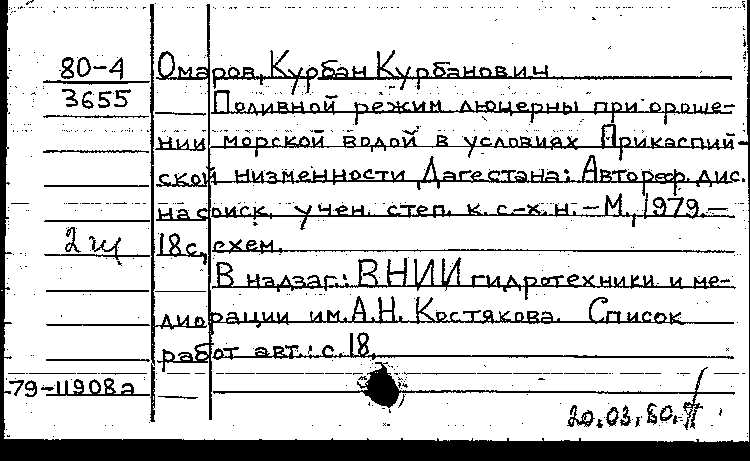 80-4 Омаров, Курбан Курбанович
3655 Поливной режим люцерны при ороше-
нии морской водой в условиях Прикаспий-
ской низменности Дагестана: Автореф. дис.
на соиск. учен. степ. к. с.-х. н. - М., 1979. -
18с, схем.
В надзаг.: ВНИИ гидротехники и ме-
лиорации им. А.Н. Костякова. Список
работ авт.: с. 18.
79-11908а
20.03.80.